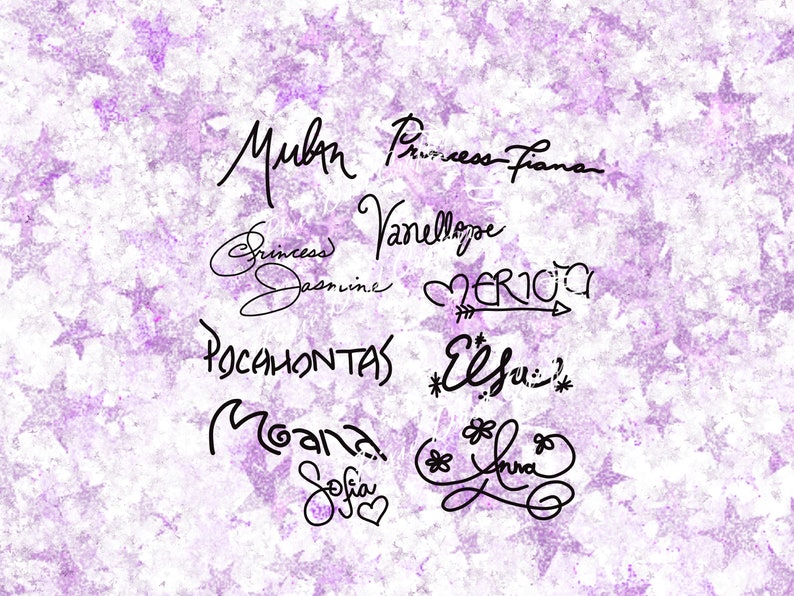 Mulan Princess Tiana
Vanellope
Princess
Jasmine
MERIDA
POCAHONTAS
Elsa
Moana
Anna
Sofia